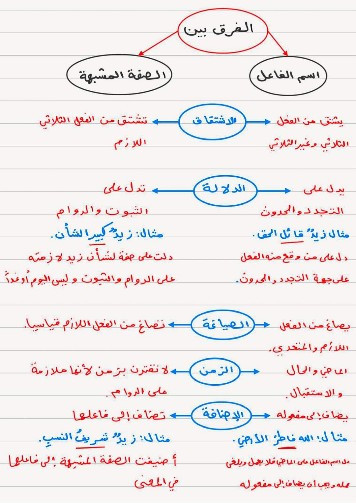 الفرق بين
اسم الفاعل
الصفة المشبهة
الاشتقاق
يشتق من الفعل
الثلاثي وغير الثلاثي
تشتق من الفعل الثلاثي
اللازم
الدلالة
يدل على
التجدد والحدوث
مثال زيدٌ قائل الحق.
دل على من وقع منه الفعل
على جهة التجدد والحدوث.
تدل على
الثبوت والدوام
مثال: زيدٌ كبير الشأن.
دلت على صفة لشأن زيد لازمته
على الدوام والثبوت وليس اليوم أو غداً
الصياغة
يصاغ من الفعل
اللازم والمتعدي.
تصاغ من الفعل اللازم قياسيا.
الزمن
الماضي والحال
والاستقبال.
لا تقترن بزمن لأنها ملازمة
على الدوام.
الإضافة
يضاف إلى مفعوله
مثال: الله فاطرُ الأرضِ
دل اسم الفاعل على الماضي فلا يعمل ويلغى
عمله وجب أن يضاف إلى مفعوله
تضاف إلى فاعلها
مثال: زيدٌ شريفُ النسبِ.
أضيفت الصفة المشبهة إلى فاعلها
في المعنى